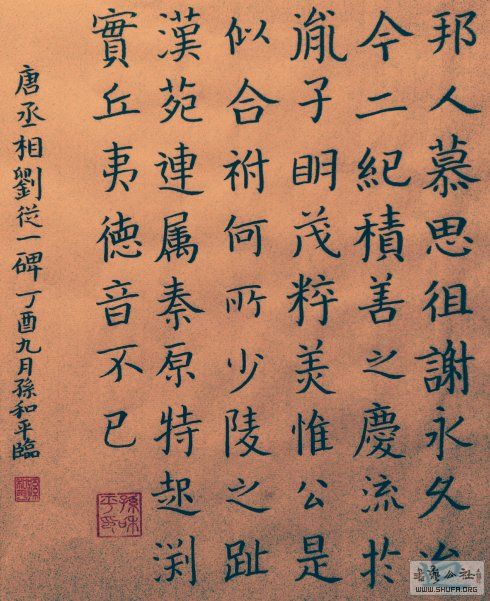 邦人慕思徂謝永久
今二紀積善之慶流於
胤子眀茂粹美惟公是
似合祔何所少陵之趾
漢苑連属秦原特起渕
實丘夷徳音不已
孫和平印
唐丞相劉從一碑丁酉九月孫和平臨
書法公社
WWW.SHUFA.ORG